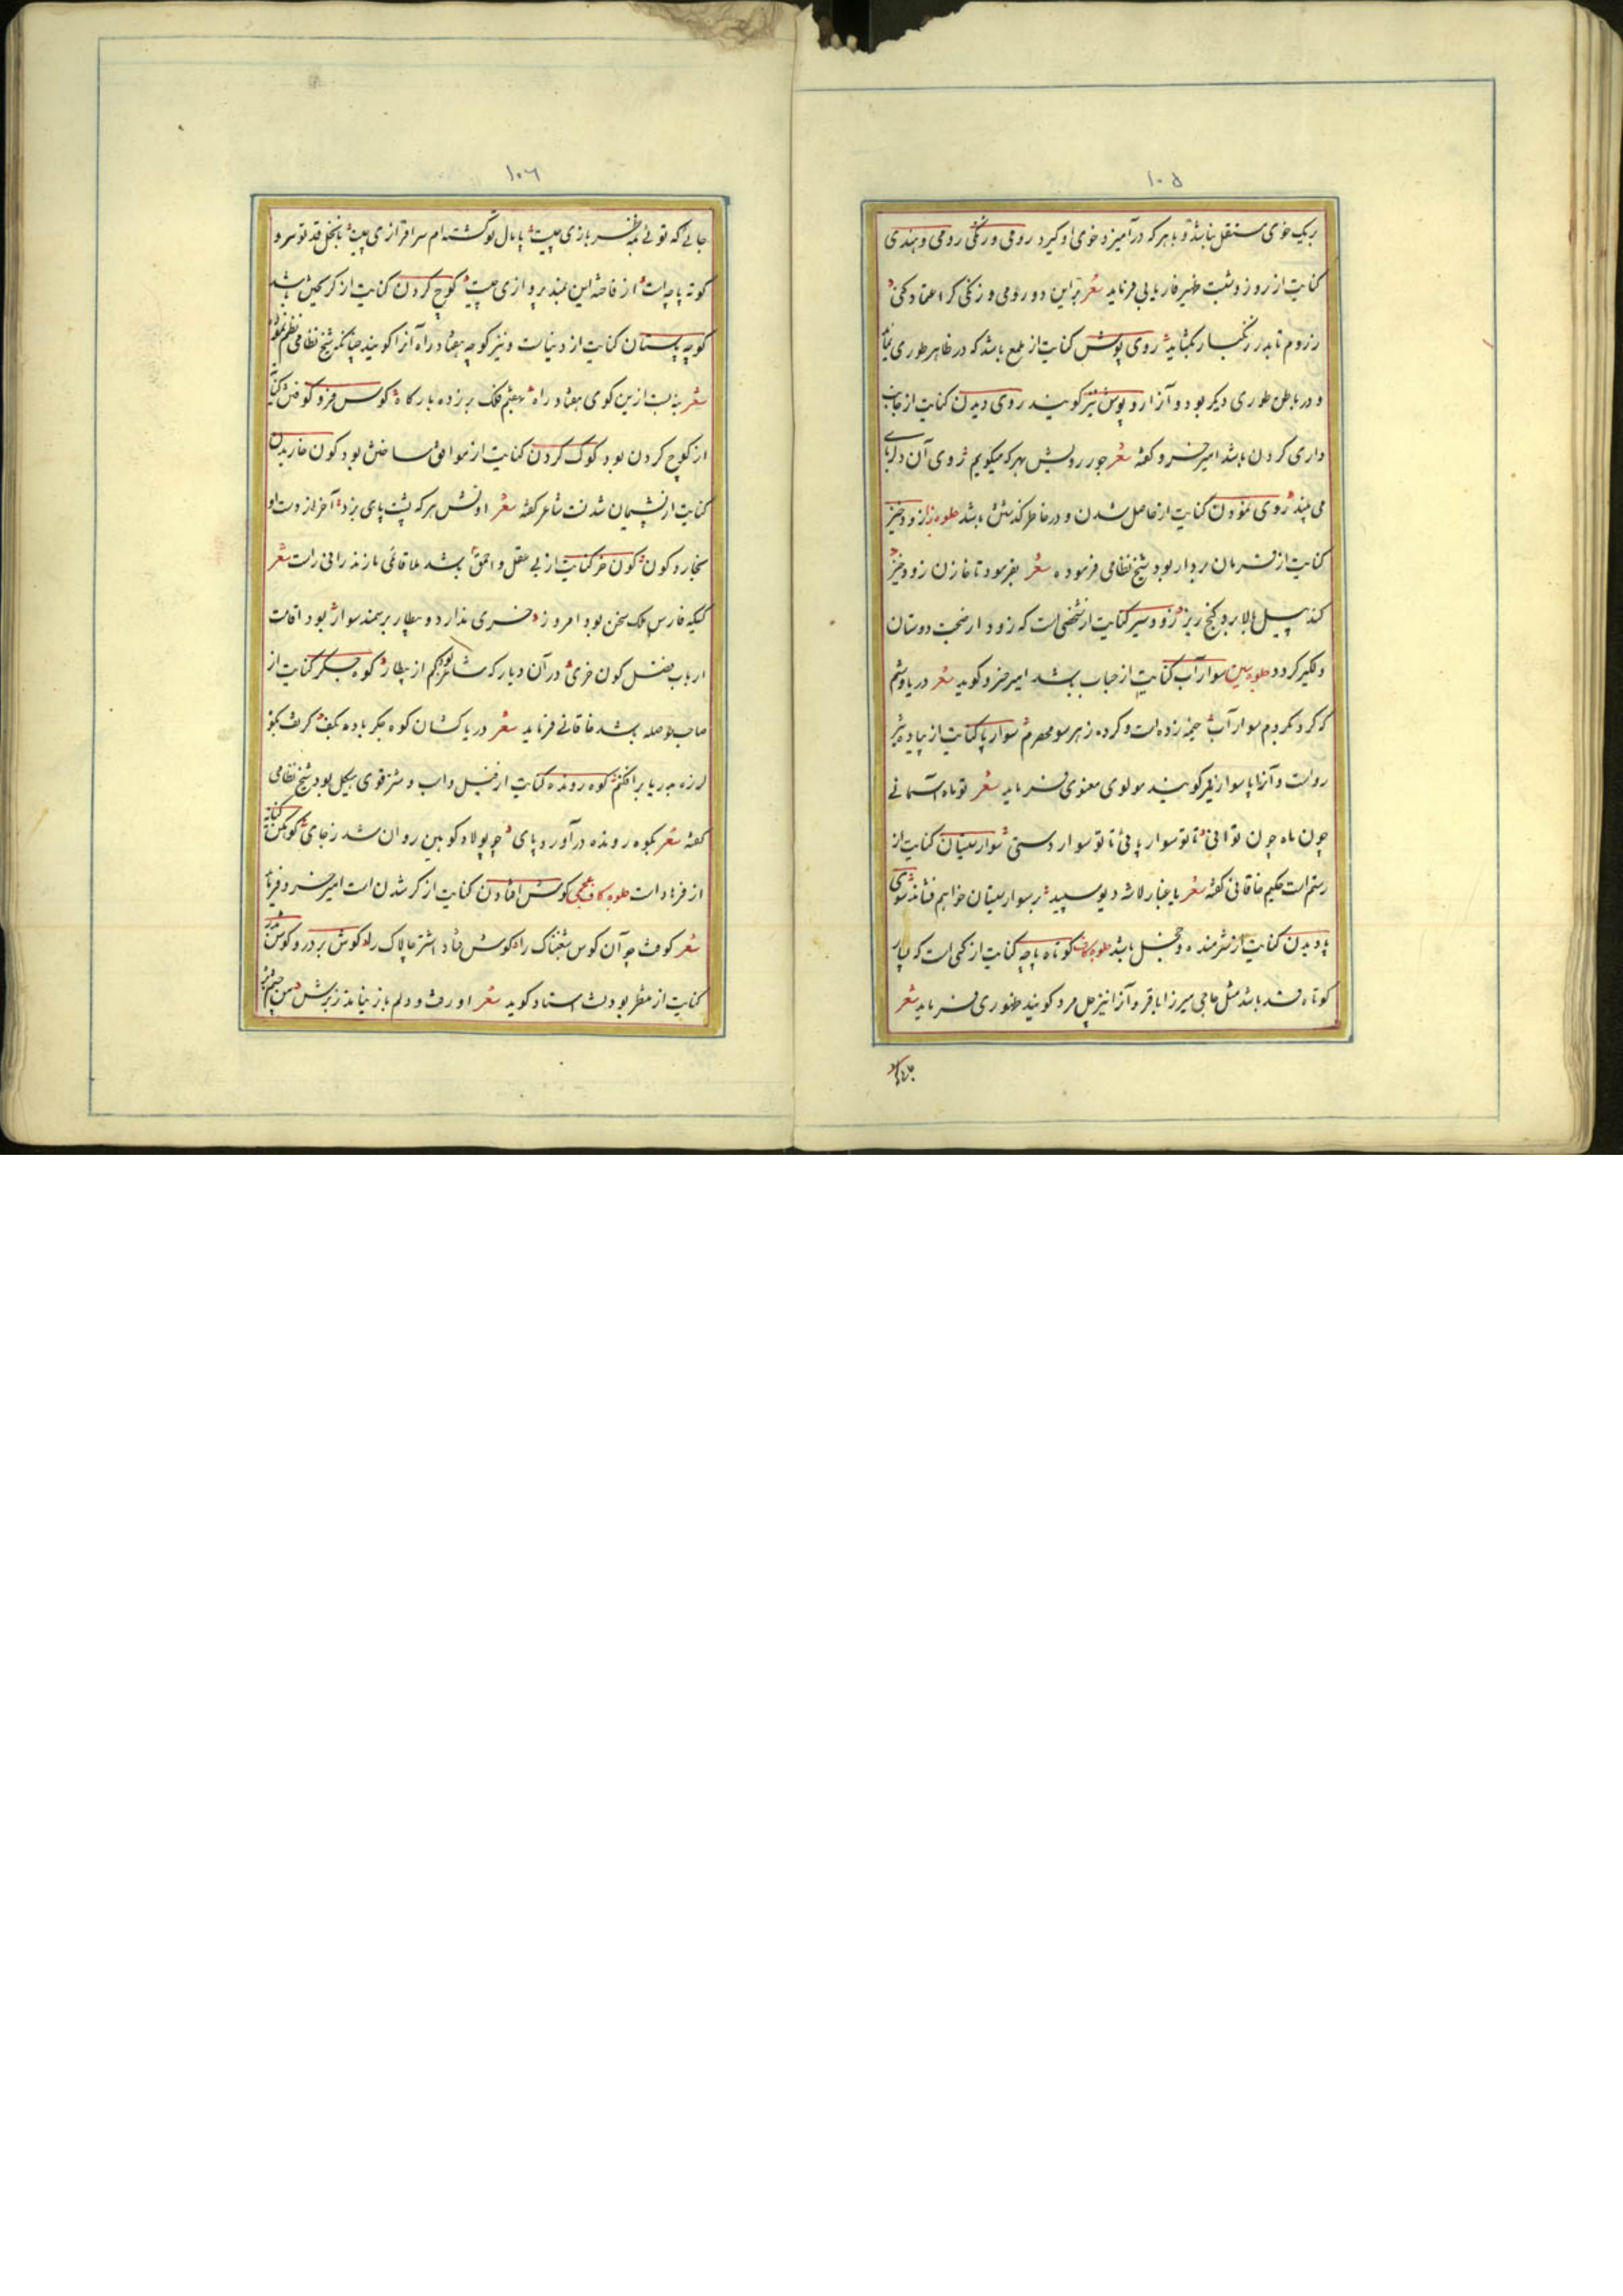 ۱۰۵
بریک خوی مستقل نباشد و با هر که درآمیزد خوی او گیرد رومی و زنگی رومی و هندی
کنایت از روز و شب ظهیر فاریابی فرماید شعر بر این دو رومی و زنگی گر اعتماد کنی
ز روم تا بدر زنگبار بگشاید روی پوش کنایت از طمع باشد که در ظاهر طوری نماید
و در باطن طوری دیگر بود و آنرا رو پوش نیز گویند روی دیدن کنایت از جانب
داری کردن باشد امیر خسرو گفته شعر جور رویش بهر که میگویم روی آن دلربای
می بیند روی نمودن کنایت از حاصل شدن و در خاطر گذشتن باشد جلوه زا زود خیز
کنایت از فرمان بردار بود شیخ نظامی فرموده شعر بفرمود تا خازن زود خیز
کند پیل بالا برو گنج ریز زود سیر کنایت از شخصی است که زود از صحبت دوستان
دلگیر گردد جلوه سین سوار آب کنایت از حباب باشد امیر خسرو گوید شعر در یاوشم
که گرد بگردم سوار آب خیمه زده است و کرده ز هر سو محصرم سوار پا کنایت از پیاده تیز
رو است و آنرا پا سوار نیز گویند مولوی معنوی فرماید شعر تو ماه آسمانی
چون ماه چون توافی تا تو سوار پائی تا تو سوار دستی سوار سیستان کنایت از
رستم است حکیم خاقانی گفته شعر با غبار لاشه دیو سپید بر سوار سیستان خواهم فشاند سوی
پا دیدن کنایت از شرمنده و خجل باشد جلوه کاف کوتاه پاچه کنایت از کمی است که بپار
کوتاه قد باشد مثل حاجی میرزا باقر و آنرا نیز چل مرد گویند ظهوری فرماید شعر
۱۰۶
جائی که توئی بمه ظفر بازی چیست پامال تو گشته ام سرافرازی چیست با نخل قد تو سرو
کوته پاچه است از فاخته این بلند پروازی چیست کوچ کردن کنایت از گریختن باشد
کوچه باستان کنایت از دنیاست و نیز کوچه هفتاد راه آنرا گویند چنانکه شیخ نظامی نظم نموده
شعر بدین کوی هفتاد راه بهفتم فلک بر زده بارگاه کوس فرو کوفتن کنایه
از کوچ کردن بود کوک کردن کنایت از موافق ساختن بود کون خاریدن
کنایت از پشیمان شدنست شاعر گفته شعر اوفتش هر که پشت پای بزد آخر از دست او
بخارد کون کون خر کنایت از بی عقل و احمق باشد ملا قائمی مازندرانی راست شعر
کیکه فارس ملک سخن بود امروز خری ندارد و بیطار بر سمند سوار بود اقامت
ارباب فضل کون خری در آن دیار که شاعر بود کم از بیطار کوه جگر کنایت از
صاحب حوصله باشد خاقانی فرماید شعر دریا کشان کوه جگر باده بکف کز تف بکوه
لرزه بدریا برافکنم کوه رونده کنایت از فیل و اسب و شتر قوی هیکل بود شیخ نظامی
گفته شعر بکوه رونده درآورد پای چو پولاد کوهین روان شد ز جای کوهکن کنایه
از فرهاد است جلوه کاف عجمی گوش افتادن کنایت از کر شدن است امیر خسرو فرماید
شعر کوفت چو آن کوس شغبناک را گوش فتاد اشتر چالاک را گوش بر در و گوش بدر
کنایت از منتظر بودنست استاد گوید شعر او رفت و دلم باز نیامد ز برش من چشم بره